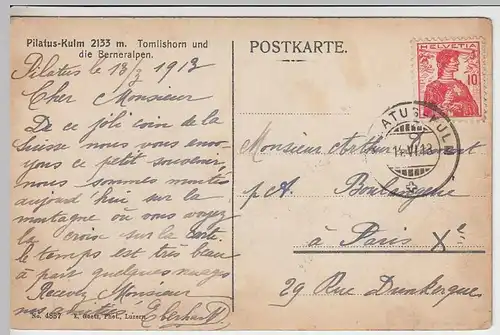 Pilatus-Kulm 2133 m. Tomlishorn und
die Berneralpen.
Pilatus le 13/7 1913
Cher Monsieur
De ce joli coin de la
Suisse nous vous envo-
yons ce petit souvenir
nous sommes montés
aujourd hui sur la
montagne où vous voyez
la croix sur la carte.
le temps est très beau
à part quelques nuages
Recevez Monsieur
nos amitiés Eberhardt
No. 4557
Phot., Luzern
POSTKARTE.
HELVETIA
10
PILATUS-KULM
VII.13
Monsieur Arthur
p. A. Boulangerie
à Paris Xe
29 Rue Dunkerque